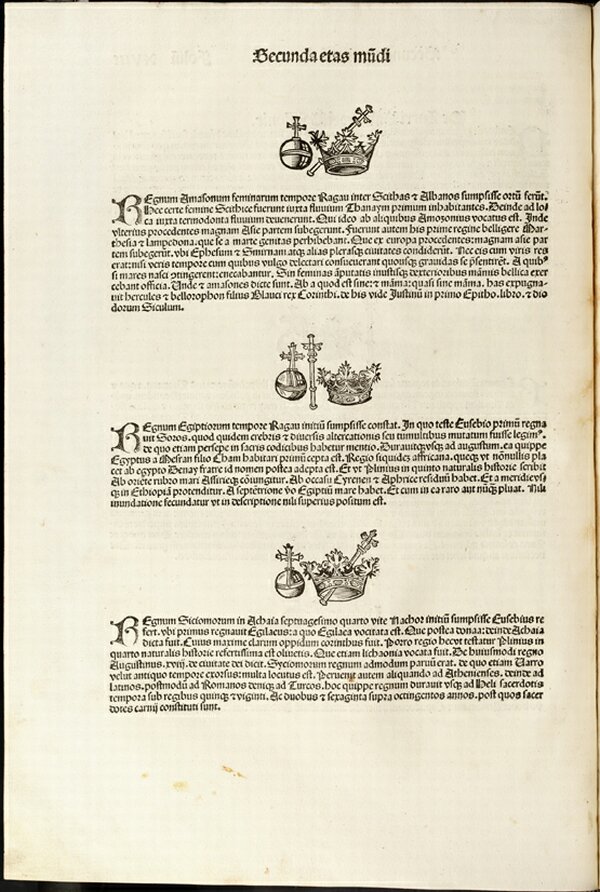 Secunda etas mūdi
REgnum Amasonum feminarum tempore Ragau inter Scithas ⁊ Albanos sumpsisse ortū ferūt.
Hec certe femine Scithice fuerunt iuxta fluuium Thanaym primum inhabitantes. Deinde ad lo
ca iuxta termodonta fluuium deuenerunt. Qui ideo ab aliquibus Amozonius vocatus est. Inde
vlterius procedentes magnam Asie partem subegerunt. Fuerunt autem his prime regine belligere Mar-
thesia ⁊ lampedona. que se a marte genitas perhibebant. Que ex europa procedentes: magnam asie par
tem subegerūt. vbi Ephesum ⁊ Smirnam atqꝫ alias plerasqꝫ ciuitates condiderūt. Nec eis cum viris res
erat: nisi veris tempore cum quibus vulgo delectari consueuerant quousqꝫ grauidas se p̄sentirēt. A quibꝰ
si mares nasci ɔtingerent: enecabantur. Sin feminas āputatis inustisqꝫ dexterioribus māmis bellica exer
cebant officia. Unde ⁊ amasones dicte sunt. Ab a quod est sine: ⁊ māma: quasi sine māma. has expugna-
uit hercules ⁊ bellorophon filius Glauci rex Corinthi. de his vide Justinū in primo Epitho. libro. ⁊ dio
dorum Siculum.
REgnum Egiptiorum tempore Ragau initiū sumpsisse constat. In quo teste Eusebio primū regna
uit Soros. quod quidem crebris ⁊ diuersis altercationis seu tumultibus mutatum fuisse legimꝰ.
de quo etiam persepe in sacris codicibus habetur mentio. Durauitqꝫ vsqꝫ ad augustum. ea quippe
Egyptus a Mesran filio Cham habitari primū cepta est. Regio siquidē affricana. queqꝫ vt nōnullis pla
cet ab egypto Denay fratre id nomen postea adepta est. Et vt Plinius in quinto naturalis historie scribit
Ab oriēte rubro mari Assirieqꝫ cōiungitur. Ab occasu Cyrenen ⁊ Aphrice residuū habet. Et a meridie vs
qꝫ in Ethiopiā protenditur. A septētrione vō Egiptiū mare habet. Et cum in ea raro aut nūqꝫ pluat. Nili
inundatione fecundatur vt in descriptione nili superius positum est.
REgnum Siciomorum in Achaia septuagesimo quarto vite Nachor initiū sumpsisse Eusebius re
fert. vbi primus regnauit Egilaeus: a quo Egilaea vocitata est. Que postea donaa: deinde Achaia
dicta fuit. Cuius maxime clarum oppidum corinthus fuit. Porro regio hec vt testatur Plinius in
quarto naturalis historie refertissima est oliuetis. Que etiam lichaonia vocata fuit. De huiusmodi regno
Augustinus. xviij. de ciuitate dei dicit. Syciomorum regnum admodum paruū erat. de quo etiam Varro
velut antiquo tempore exorsus: multa locutus est. Peruenit autem aliquando ad Athenienses. deinde ad
latinos. postmodū ad Romanos deniqꝫ ad Turcos. hoc quippe regnum durauit vsqꝫ ad Heli sacerdotis
tempora sub regibus quinqꝫ ⁊ viginti. Ac duobus ⁊ sexaginta supra octingentos annos. post quos sacer
dotes carnij constituti sunt.